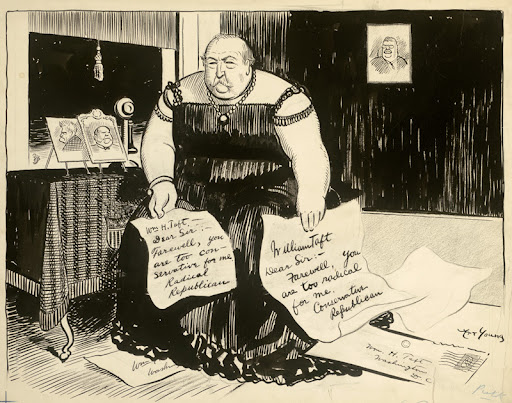 Wm H. Taft. —
Dear Sir: —
Farewell, you
are too con-
servative for me
Radical
Republican
William Taft
Dear Sir: —
Farewell, You
are too radical
for me.
Conservative
Republican
Art Young
Wm. H. Taft
Washington
D. C.
Wm
Washin